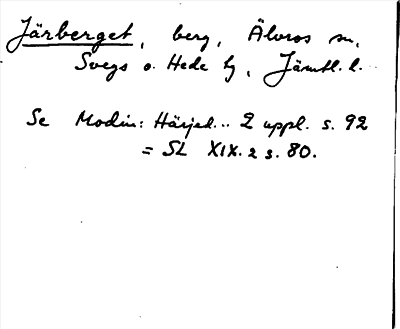 Järberget, berg, Älvros sn,
Svegs o. Hede tg, Jämtl. l.
Se Modin: Härjed... 2 uppl. s. 92
= SL XIX. 2 s. 80.